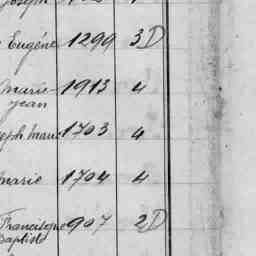 Joseph
Eugène 1299 3D
Marie- 1913 4
Jean
Joseph Marie 1703 4
Marie 1704 4
Francisque 907 2D
Baptiste